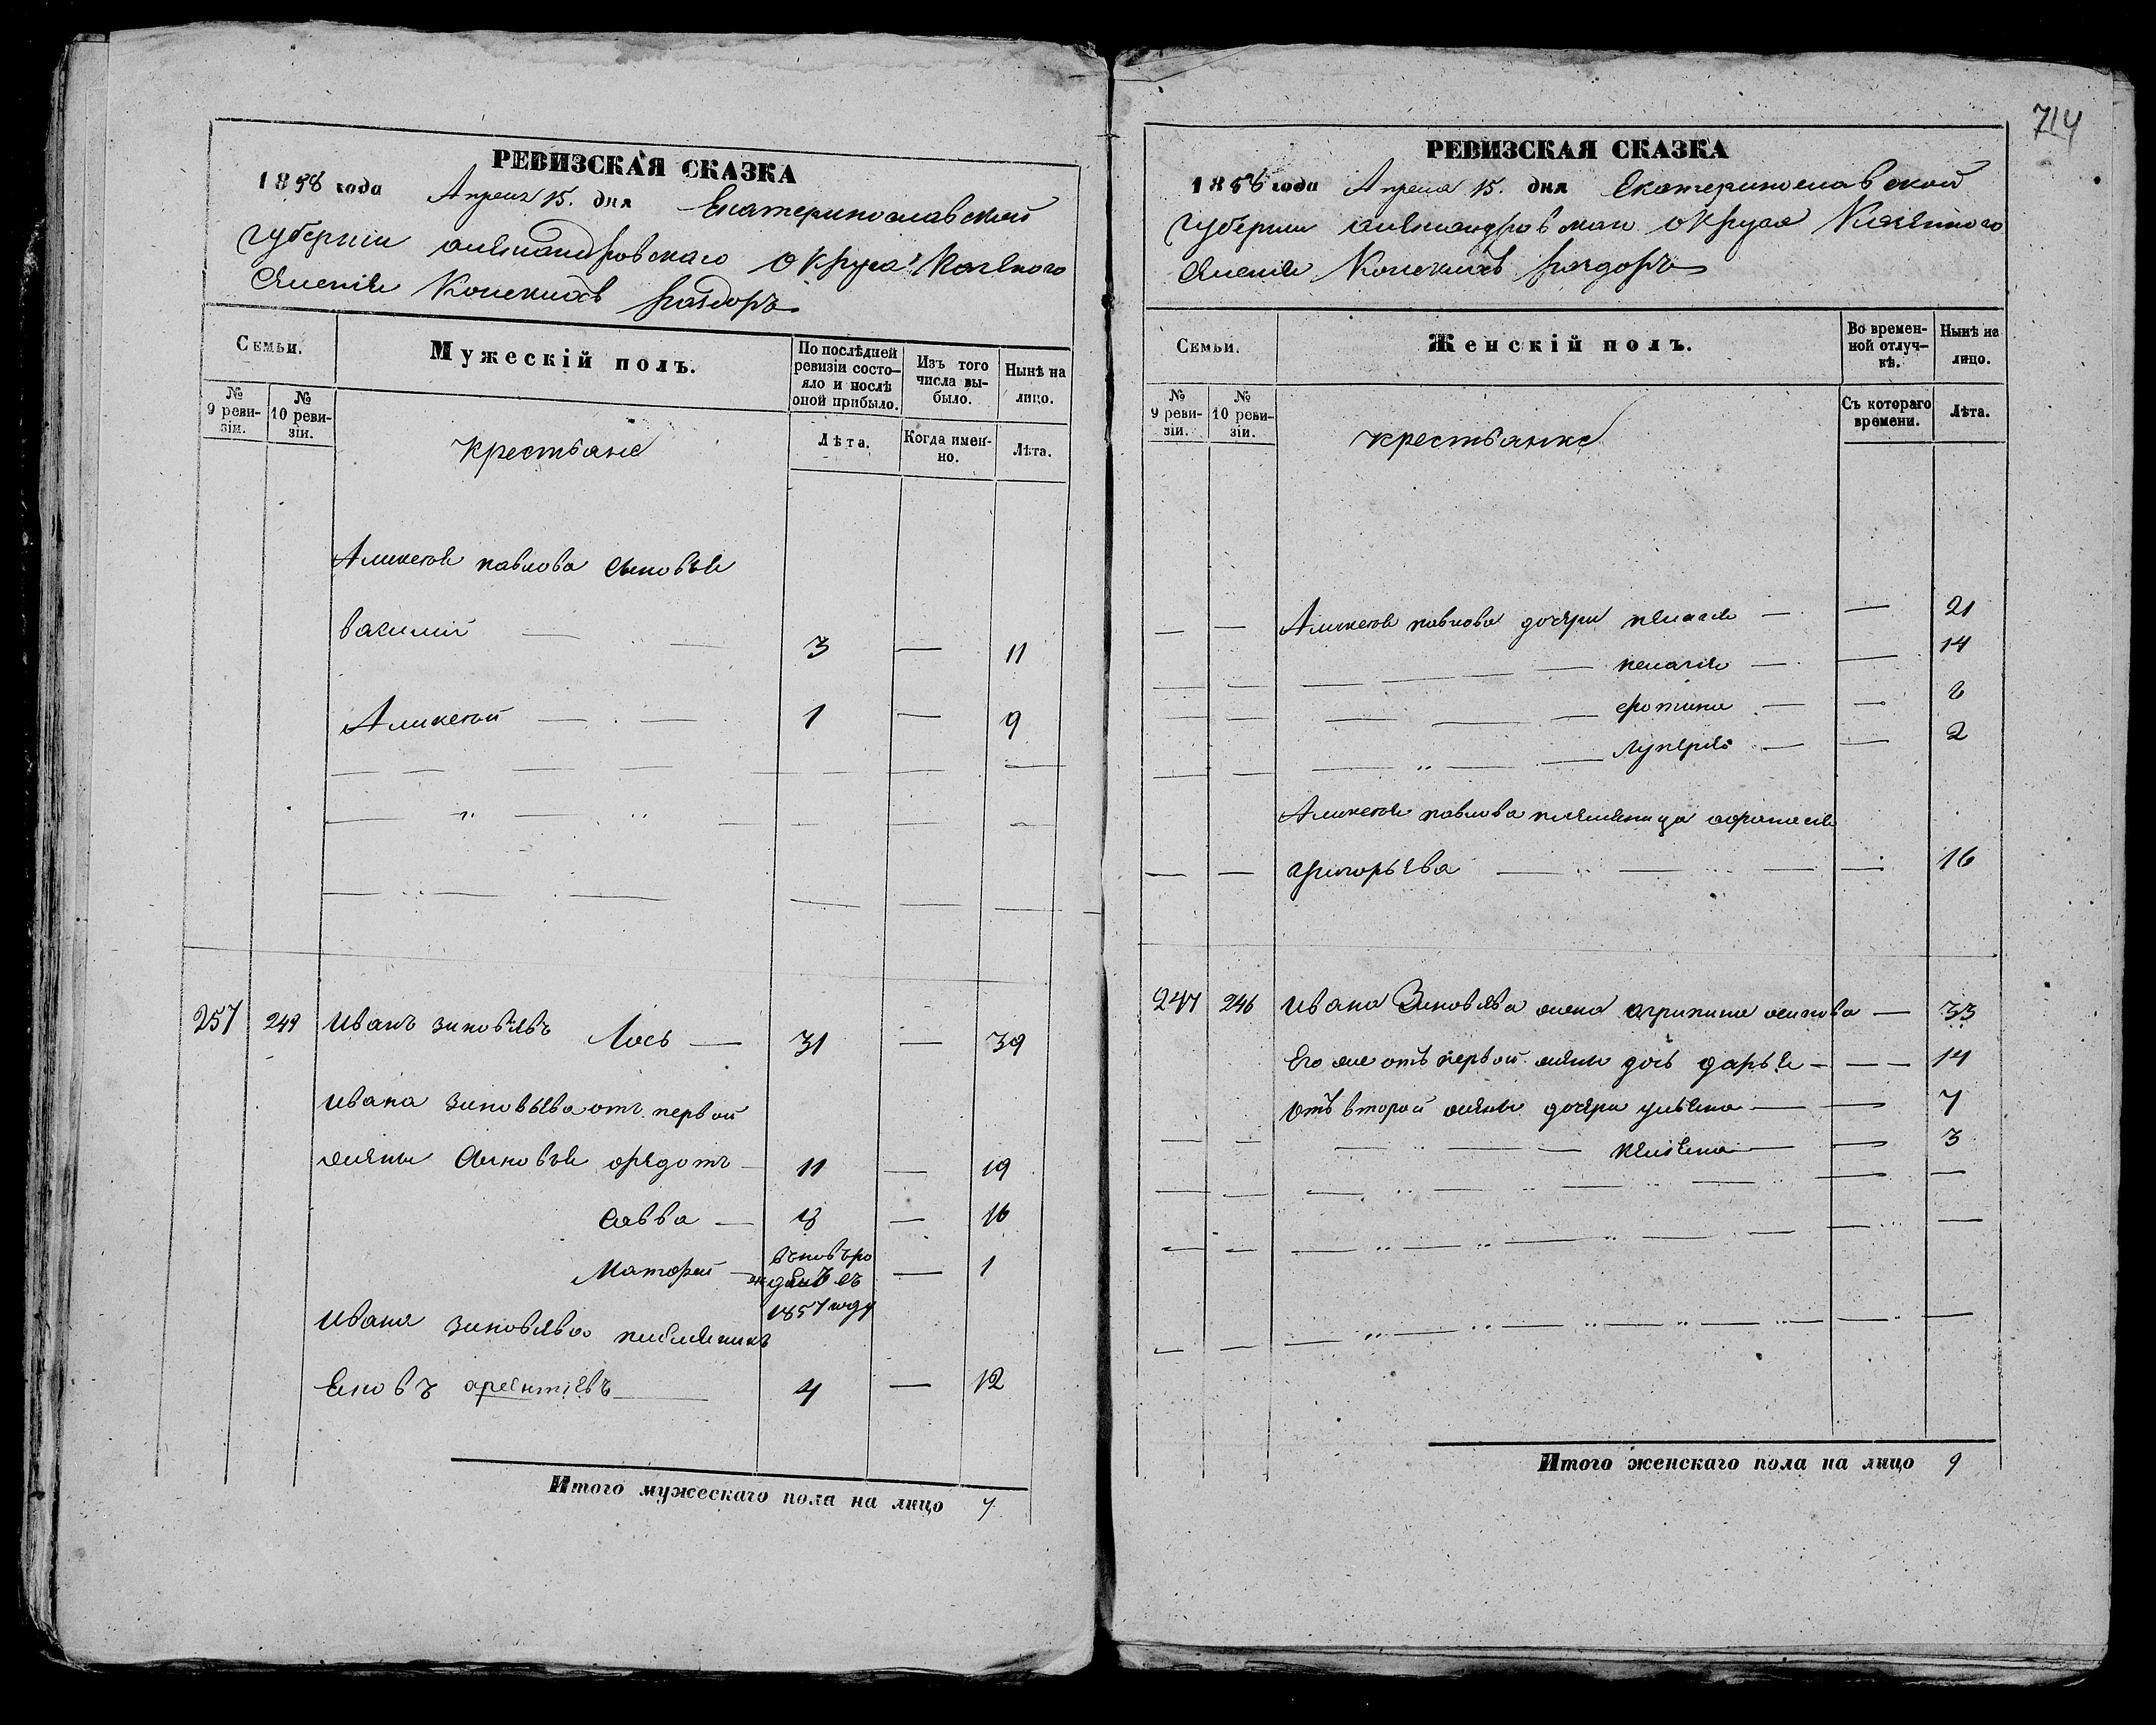 РЕВИЗСКАЯ СКАЗКА
1858 года Апреля 15. дня Екатеринославской
губерніи александровскаго округа Казенного
селенія Конскихъ раздоръ
Семьи.
Мужескій полъ.
По послѣдней ревизіи состояло и послѣ оной прибыло.
Изъ того числа выбыло.
Нынѣ на лицо.
№ 9 ревизіи.
№ 10 ревизіи.
крестьяне
Лѣта.
Когда именно.
Лѣта.
Аликсея павлова сыновья
василий — 3 — 11
Аликсей — 1 — 9
257 249 иванъ зиновьевъ Лось — 31 — 39
ивана зиновьева отъ первой
жены сыновья федотъ — 11 — 19
савва — 8 — 16
Матфей — вновь ро
жденъ въ — 1
1857 году
ивана зиновьева племяникъ
4 — 12
Итого мужескаго пола на лицо 7
714
РЕВИЗСКАЯ СКАЗКА
1858 года Апреля 15. дня Екатеринославской
губернии александровскаго округа Казенного
селенія Конскихъ раздоръ
Семьи.
Женскій полъ.
Во временной отлучкѣ.
Нынѣ на лицо.
№ 9 ревизіи.
№ 10 ревизіи.
крестьянке
Съ котораго времени.
Лѣта.
Аликсея павлова дочери пелагея — — 21
пелагея — — 14
— —
лукерья — — 2
Аликсея павлова племяница афанасия
григорьева — — 16
247 246 ивана Зиновьева жена агрипина осипова — 33
Его же отъ первой жены дочь дарья — — 14
отъ второй жены дочери ульяна — — 7
— — 3
Итого женскаго пола на лицо 9